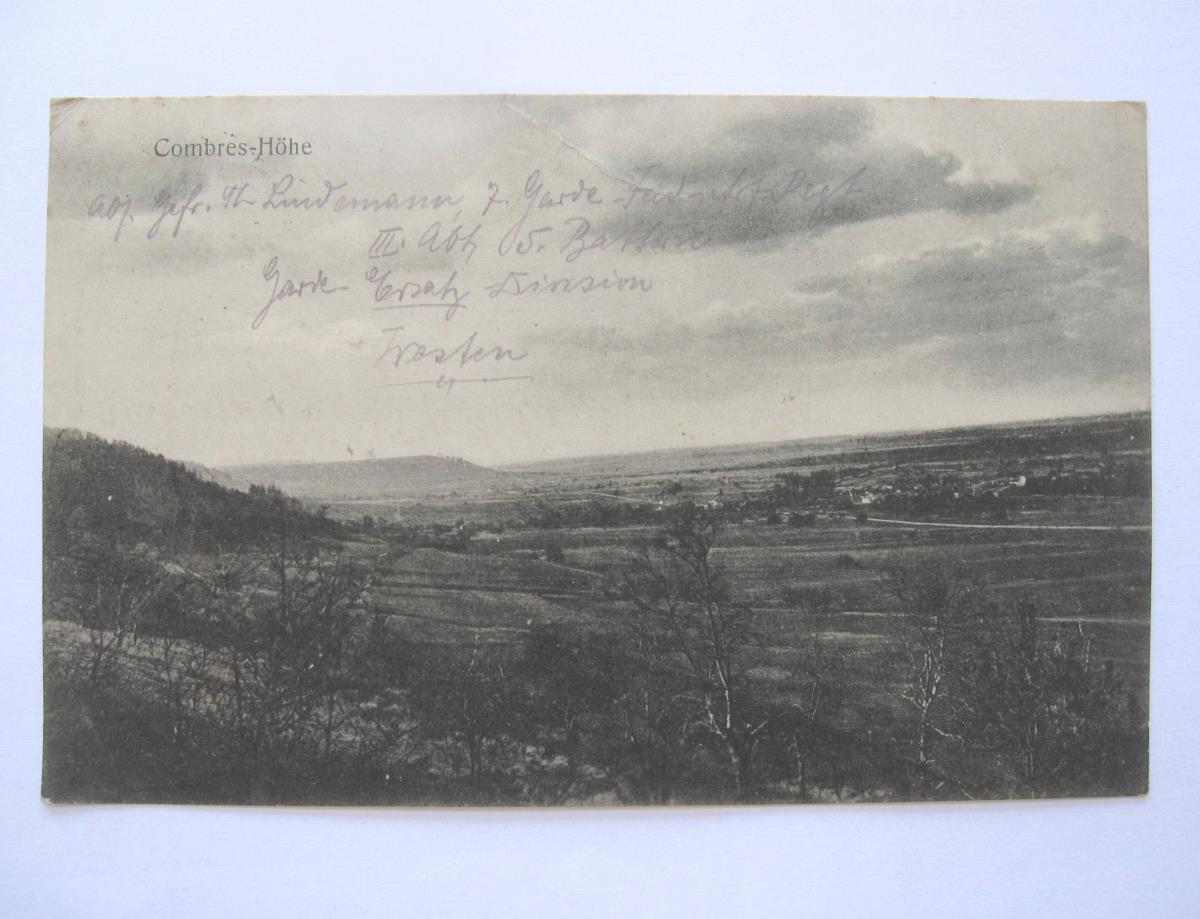 Combres-Höhe
Abs. Gefr. Th. Lindemann, 7. Garde Feld-Art. Regt
III. Abt 5. Batterie
Garde-Ersatz Division
Westen